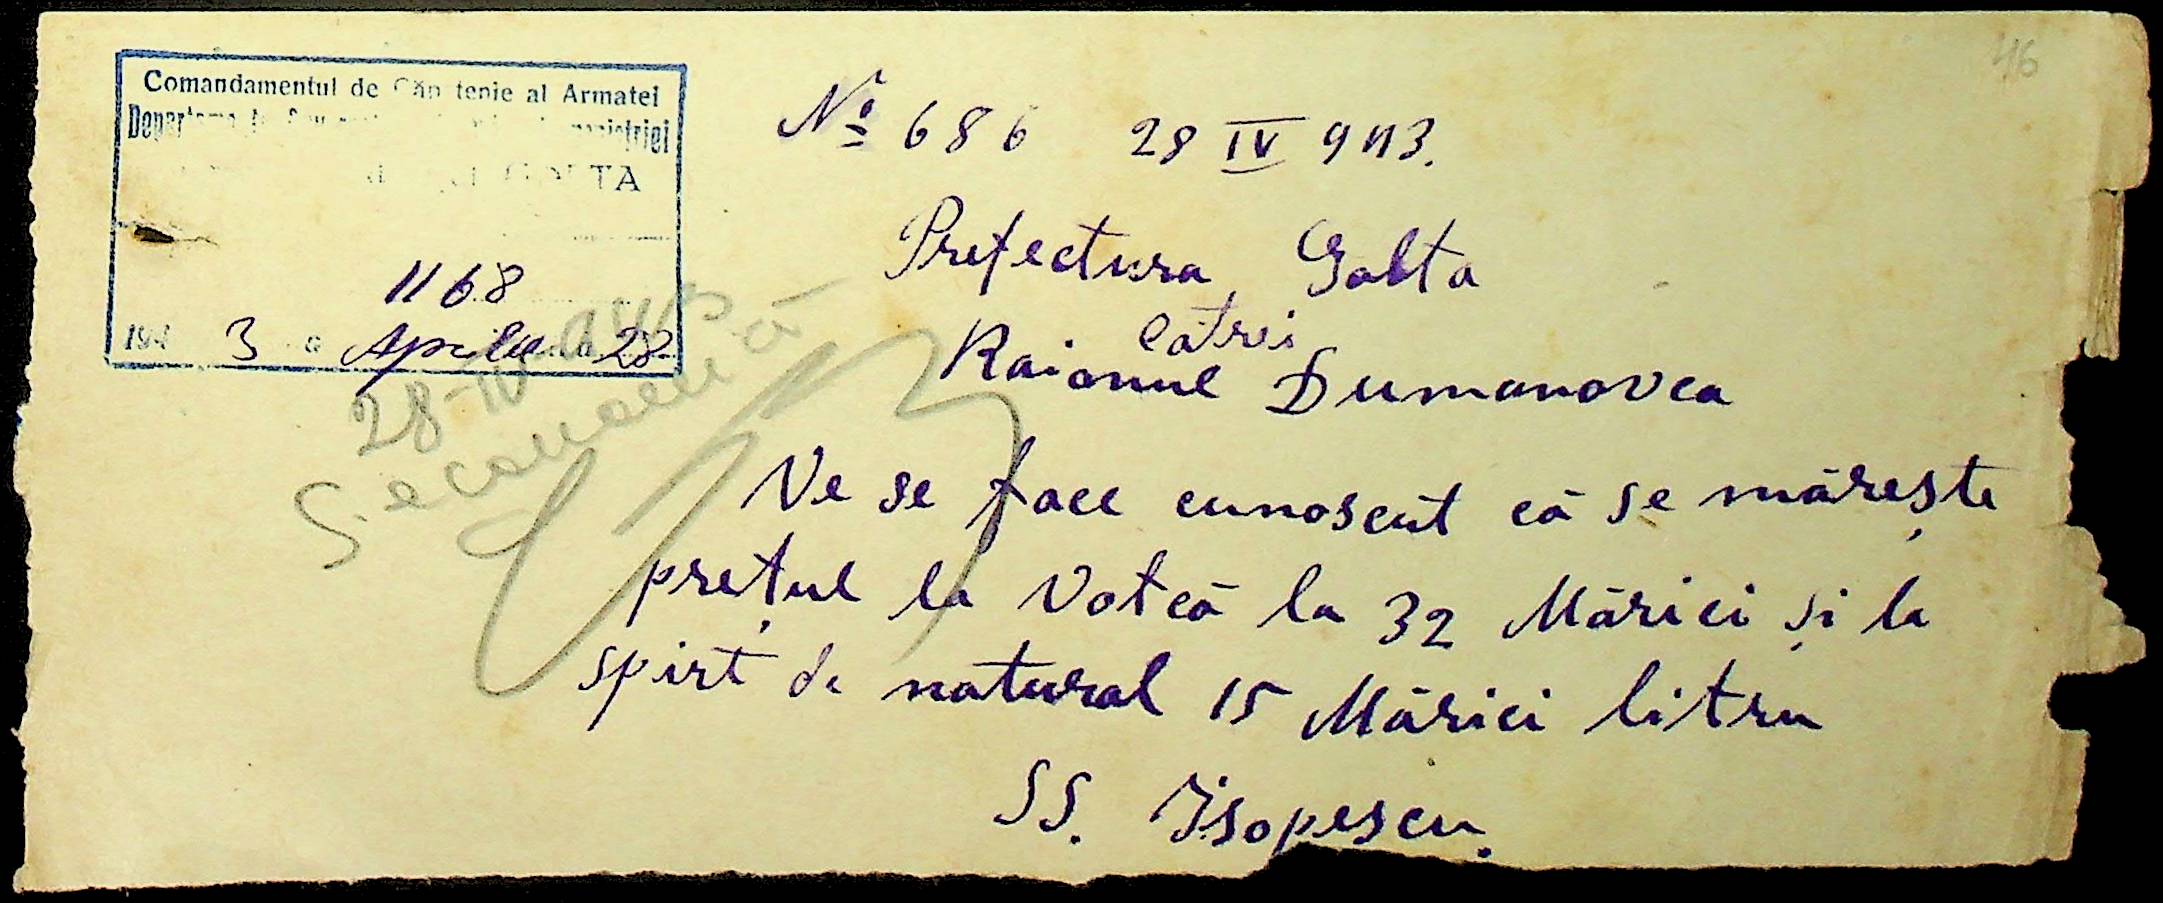 46
Comandamentul de Căp tenie al Armatei
TA
1168
194 3 a Aprilie 28
28-IV-943
Nº 686 28 IV 943.
Prefectura Golta
Cătri
Raionul Dumanovca
Ve se face cunoscut că se mărește
prețul la Votcă la 32 Mărici și la
spirt de natural 15 Mărici litru
SS. Isopescu.